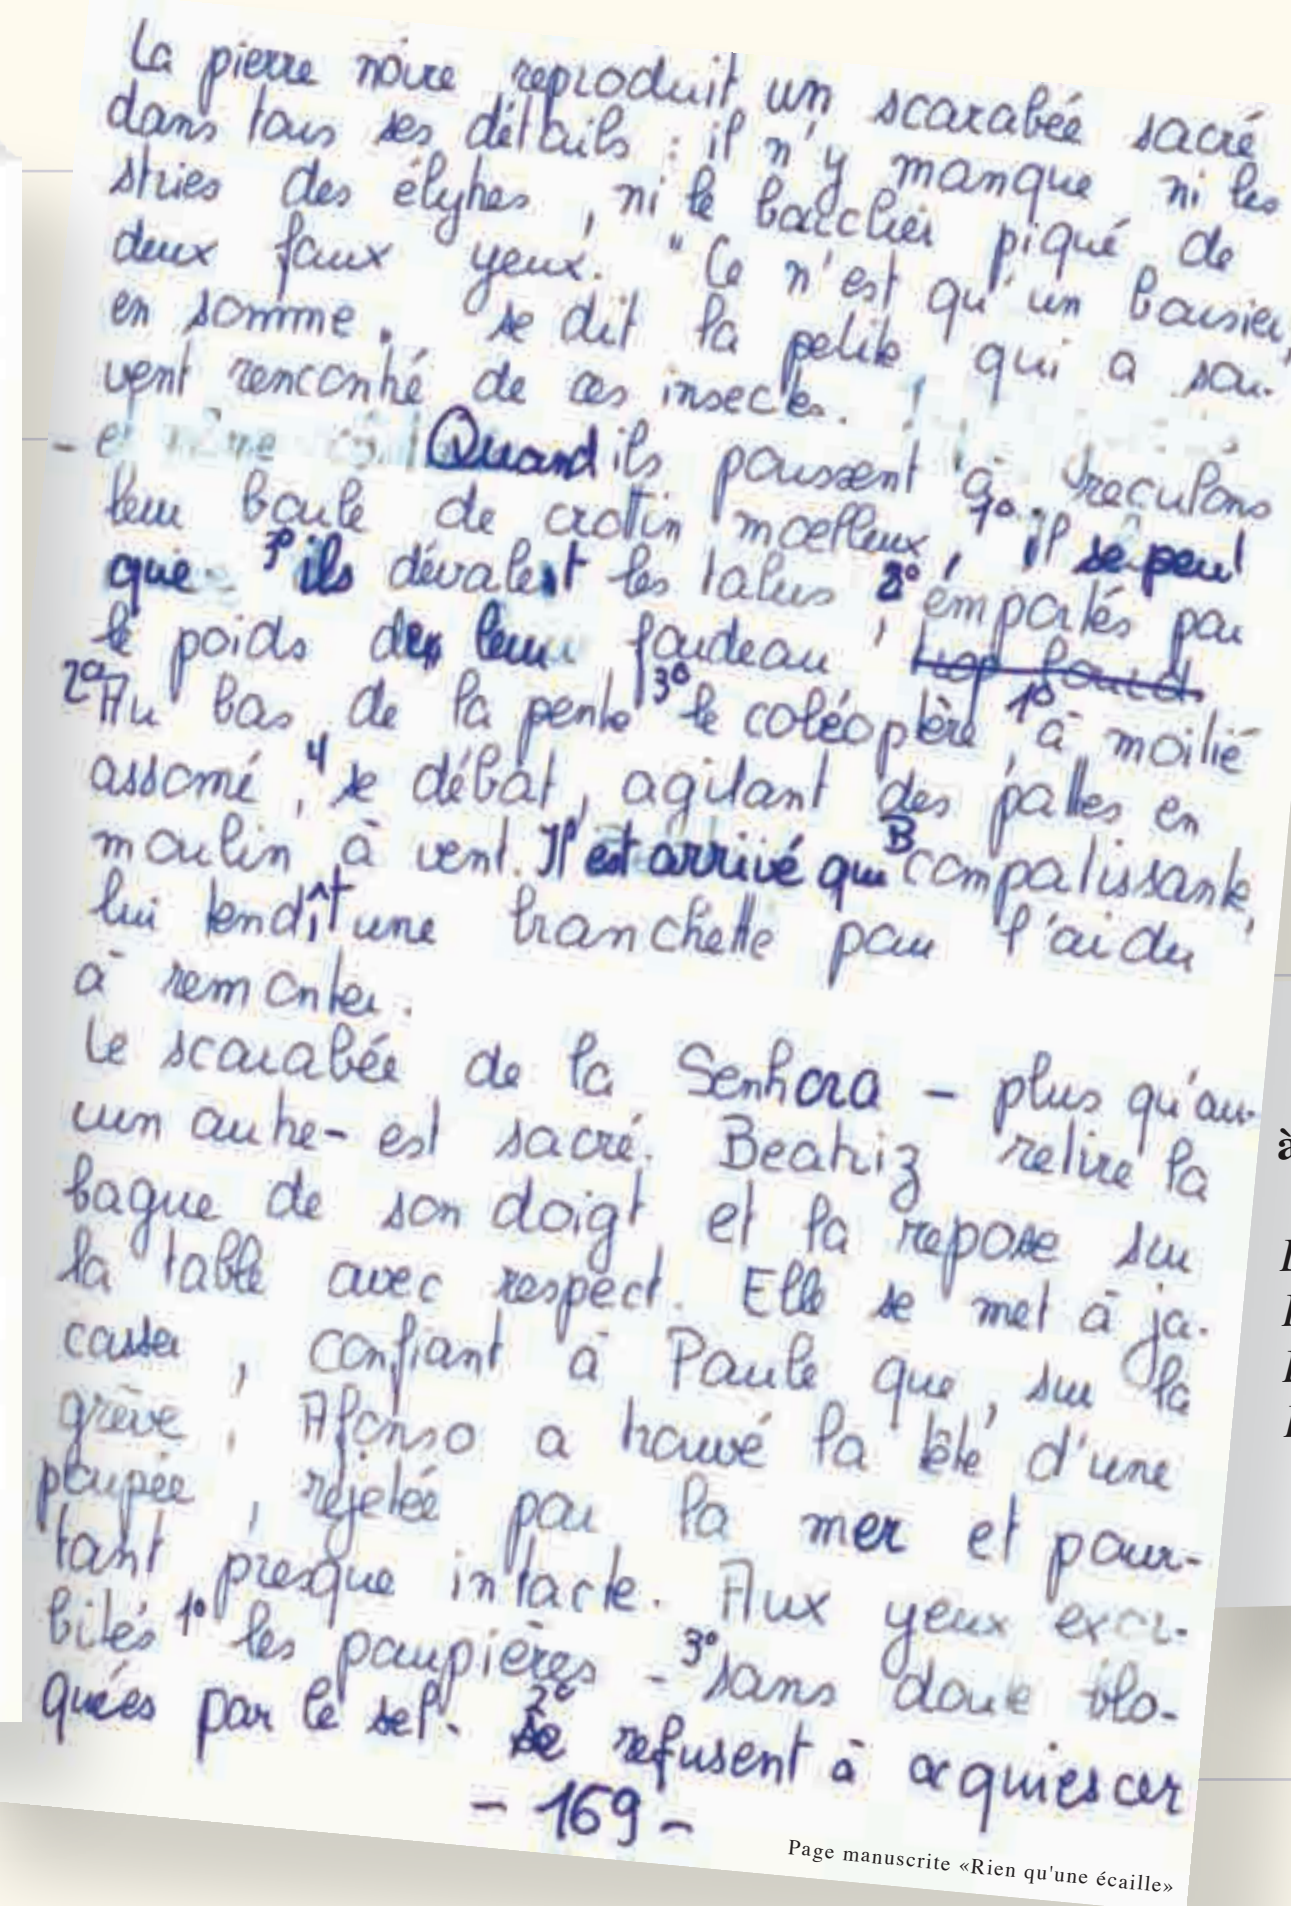 La pierre noire reproduit un scarabée sacré
dans tous ses détails : il n'y manque ni les
stries des élytres, ni le bouclier piqué de
deux faux yeux. "Ce n'est qu'un bousier,
en somme. se dit la petite qui a sou-
vent rencontré de ces insectes.
- Quand ils poussent à reculons
leur boule de crottin moelleux, 1° il se peut
que 3° ils dévalent les talus 2°, emportés par
le poids de leur fardeau, trop lourd.
2° Au bas de la pente 3° le coléoptère, 1° à moitié
assomé, 4 se débat, agitant des pattes en
moulin à vent. Il est arrivé que B compatissante,
lui tendît une branchette pour l'aider
à remonter.
Le scarabée de la Senhora - plus qu'au-
cun autre - est sacré. Beatriz retire la
bague de son doigt et la repose sur
la table avec respect. Elle se met à ja-
casser, confiant à Paule que, sur la
grève, Afonso a trouvé la tête d'une
poupée, rejetée par la mer et pour-
tant presque intacte. Aux yeux exor-
bités 1° les paupières - 3° sans doute blo-
quées par le sel - 2° se refusent à acquiescer
- 169 -
Page manuscrite «Rien qu'une écaille»
à